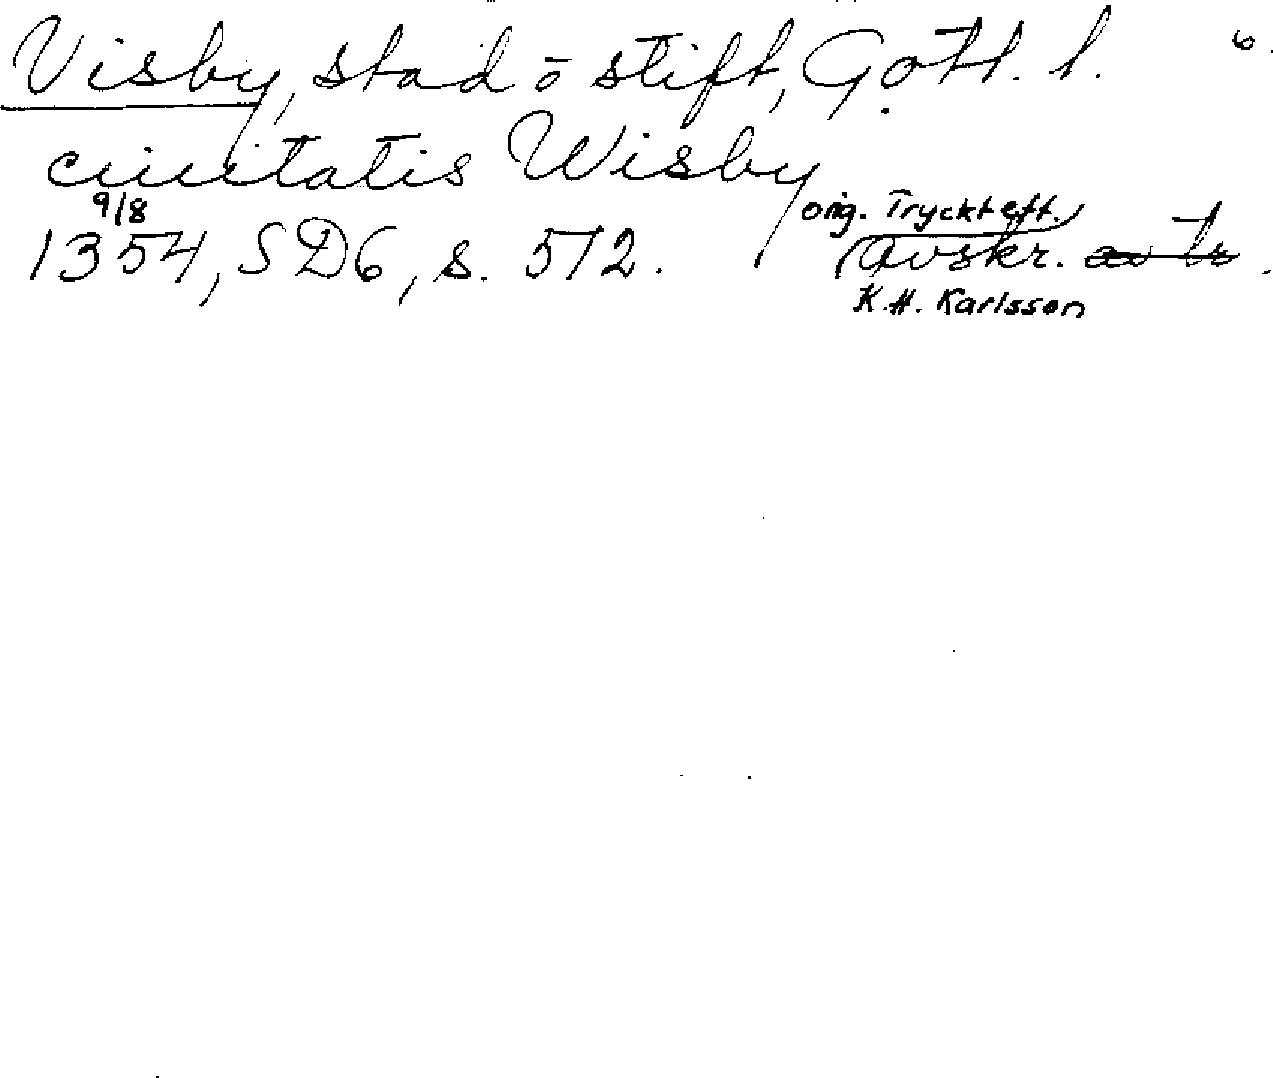 Visby, stad o stift, Gotl. l. 6.
ciuitatis Wisby
9/8 orig. Tryckt eft.
1354, SD6, s. 572. avskr. av tr.
K.H. Karlsson